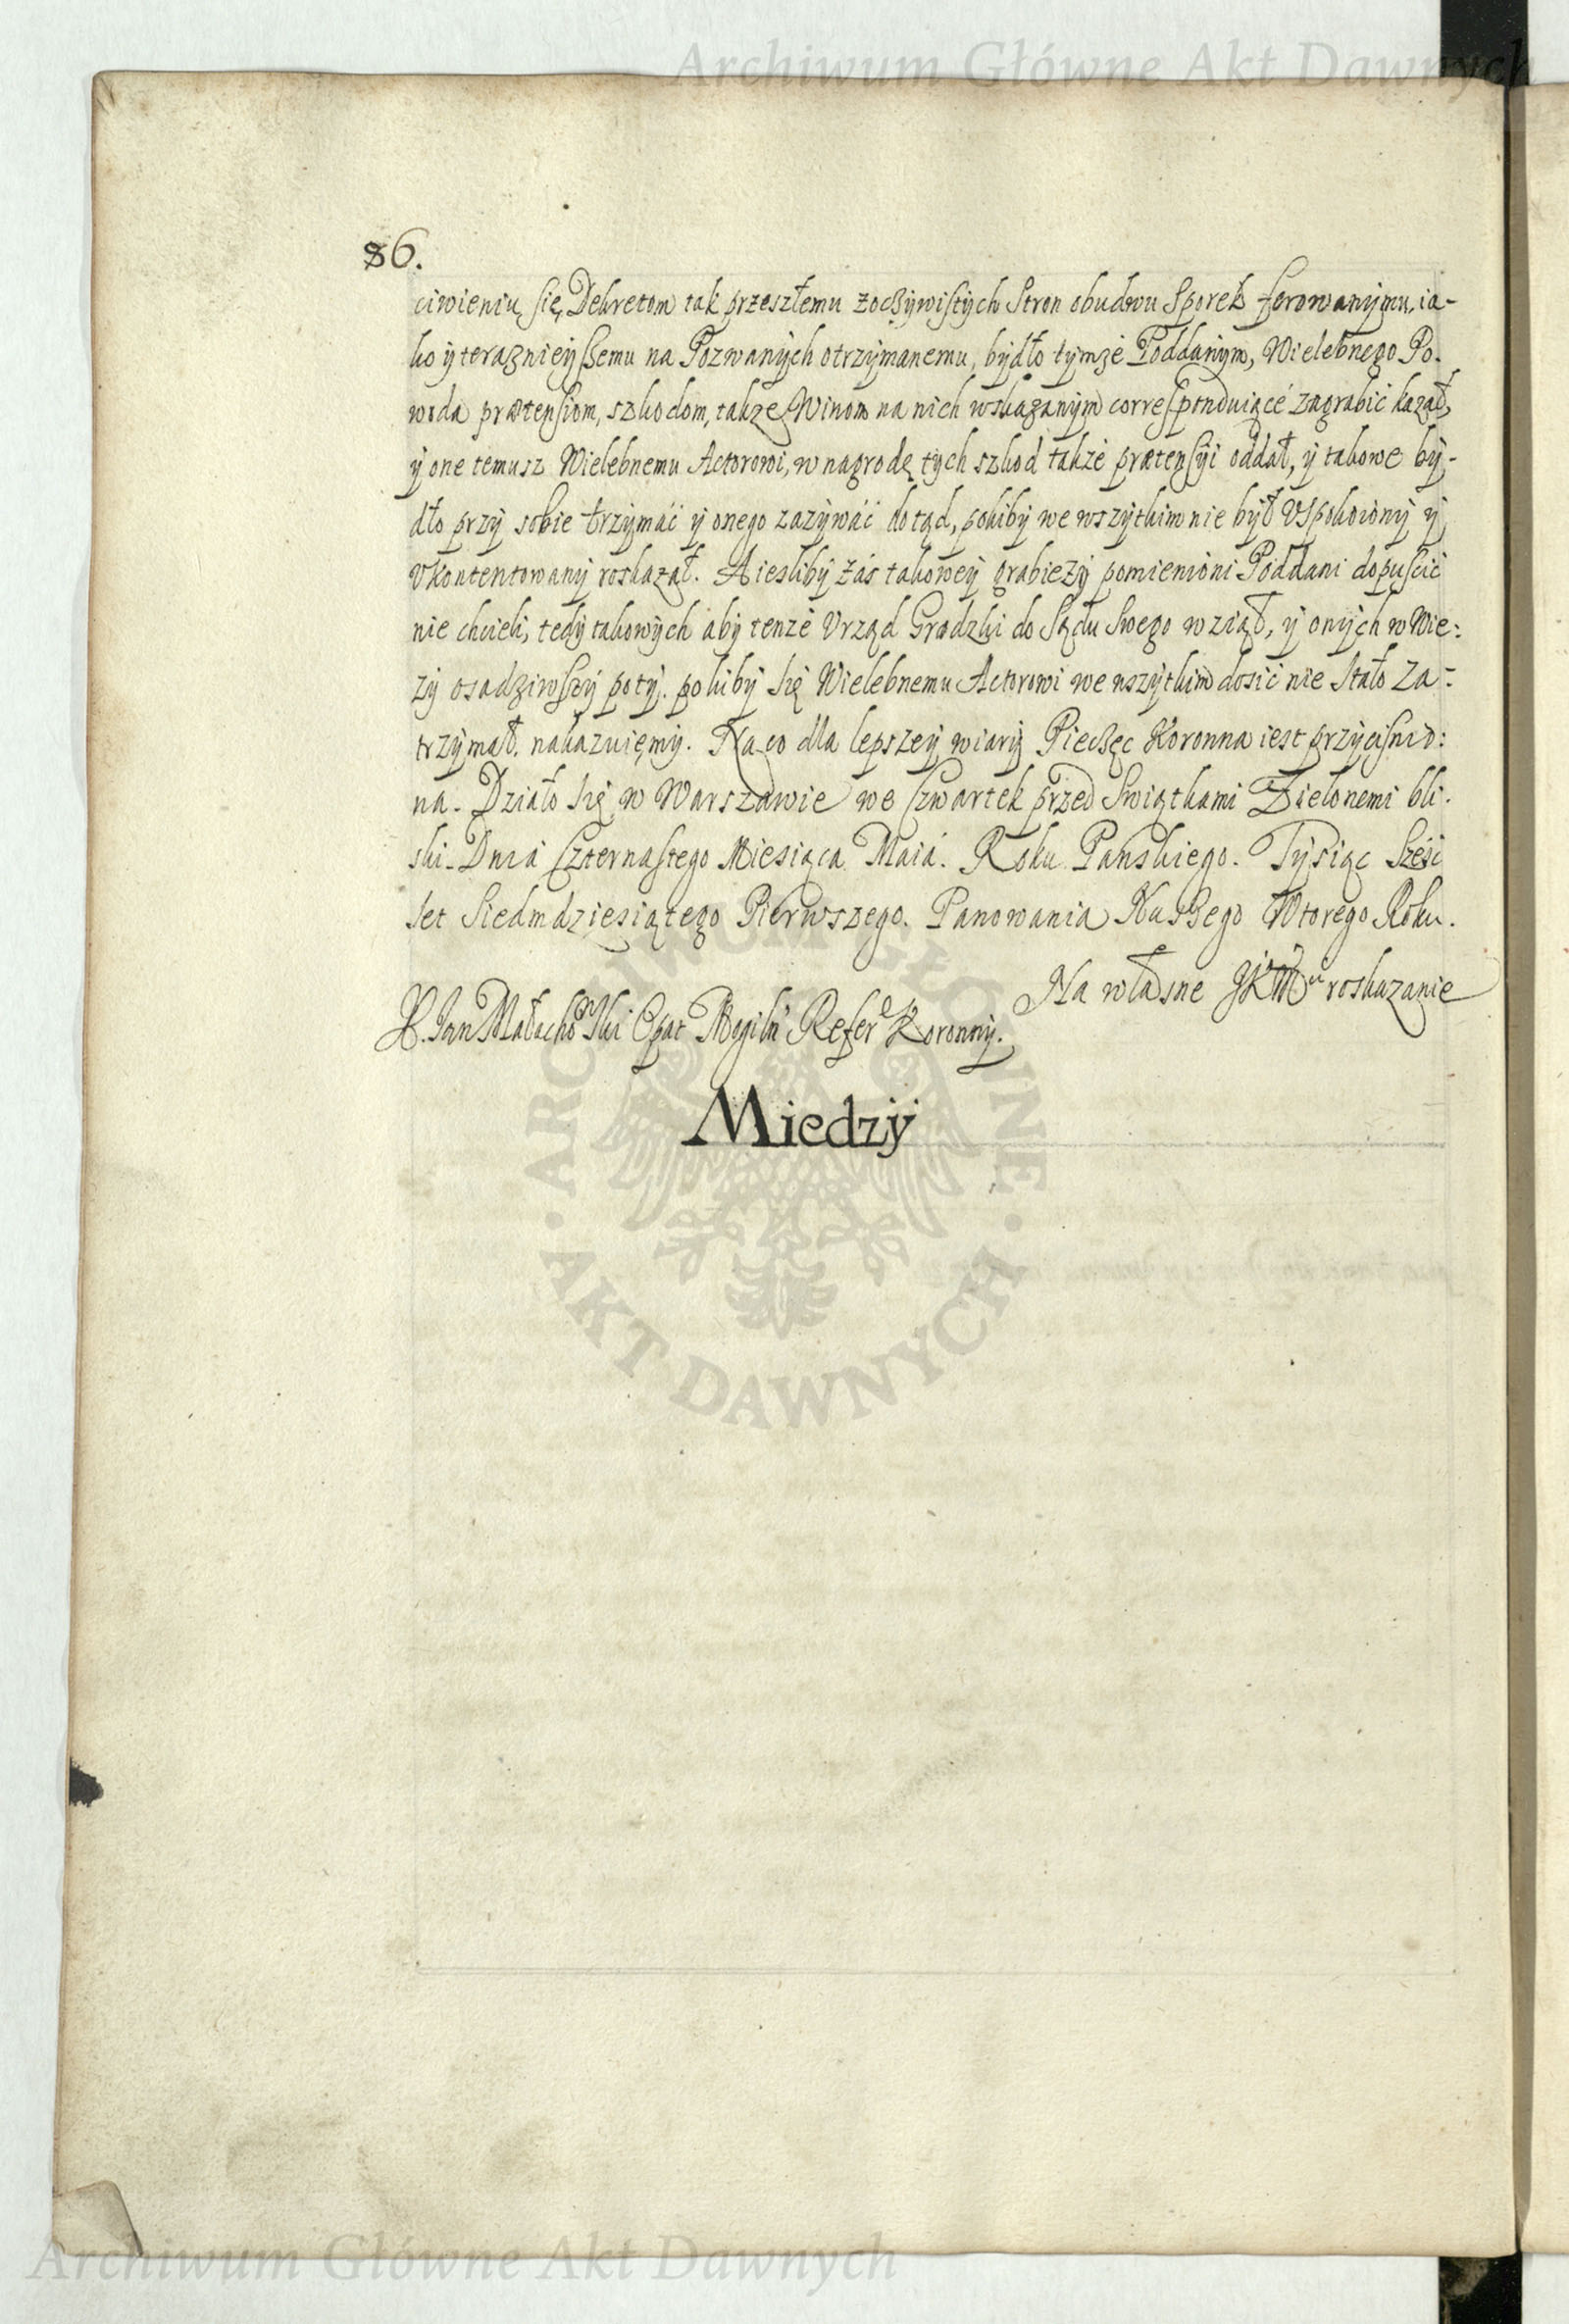 Archiwum Główne Akt Dawnych
86.
ciwieniu się Dekretom tak przeszłemu z oczÿwistÿch Stron obudwu Sporek ferowanÿmu, ia-
ko ÿ teraznieÿszemu na Pozwanÿch otrzÿmanemu, bÿdło tÿmże Poddanÿm, Wielebnego Po-
woda prætensiom, szkodom, także Winom na nich wskazanÿm correspondviące zagrabić kazał,
ÿ one temusz Wielebnemu Actorowi, w nagrodę tÿch szkod także prætensÿi oddał, ÿ takowe bÿ-
dło przÿ sobie trzÿmáć ÿ onego zazÿwáć dotąd, pokibÿ we wszÿtkim nie bÿł Vspokoionÿ ÿ
vkontentowanÿ roskazał. A iesliby zás takoweÿ grabieżÿ pomienioni Poddani dopuścić
nie chcieli, tedÿ takowÿch abÿ tenże Vrząd Grodzki do Sądu Swego wziął, ÿ onÿch w Wie:
żÿ osadziwszÿ potÿ. pokibÿ się Wielebnemu Actorowi we wszÿtkim dosić nie Stało za-
trzÿmał. nakazuięmÿ. Na co dla lepszeÿ wiarÿ Pieczęc Koronna iest przÿcisnio:
na. Działo się w Warszawie we Czwartek przed Swiątkami Zielonemi bli-
ski. Dniá Czternastego Miesiąca Maiá. Roku Panskiego. Tÿsiąc Sześć
set Siedmdziesiątego Pierwszego. Panowania Naszego Wtorego Roku.
Na własne JKMci roskazanie
X. Jan Małachowski Opat Mogiln Refer Koronnÿ.
Miedzÿ
ARCHIWUM GŁÓWNE · AKT DAWNYCH ·
Archiwum Główne Akt Dawnych